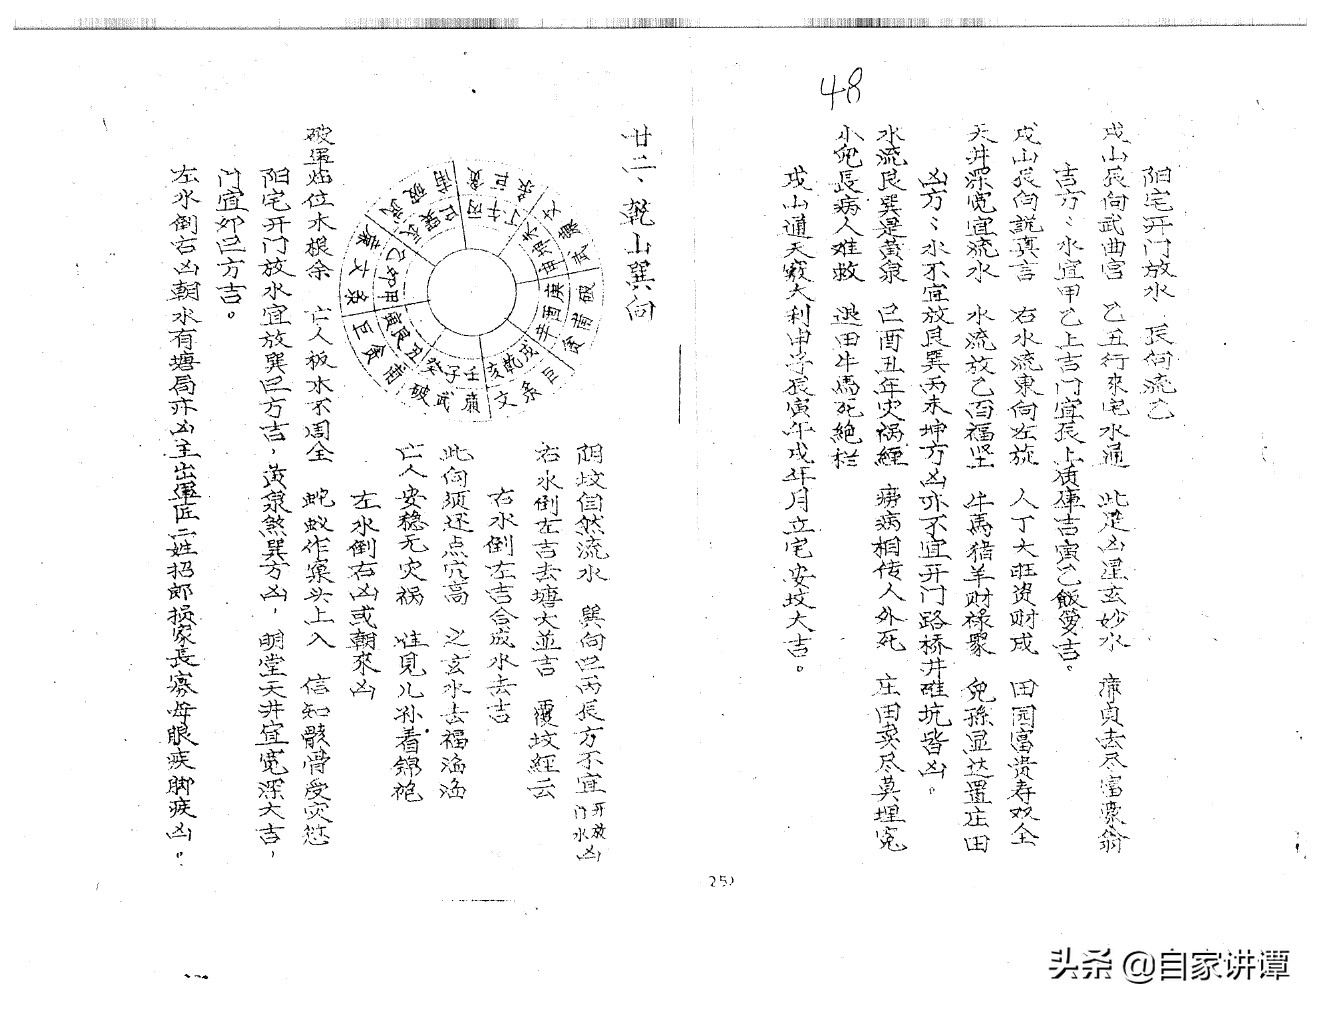 48
阳宅开门放水 辰向流乙
戌山辰向武曲宫 乙丑行來宅水通 此是凶星玄妙水 廉貞去尽富豪翁
吉方：水宜甲乙上吉门宜辰上 庫吉寅乙飯箩吉。
戌山辰向説真言 右水流東向左旋 人丁大旺资财成 田园富贵寿双全
天井深宽宜流水 水流放乙百福坚 牛馬猪羊财禄聚 兒孫显达置庄田
凶方：水不宜放艮巽丙未坤方凶亦不宜开门路桥井碓坑皆凶。
水流艮巽是黄泉 巳酉丑年灾祸經 痨病相传人外死 庄田卖尽莫埋冤
小兒長病人难救 退田牛馬死絶栏
戌山通天竅大利申子辰寅午戌年月立宅安坟大吉。
廿二、乾山巽向
阴坟自然流水 巽向巳丙辰方不宜开门放水凶
右水倒左吉去塘大並吉 覆坟經云
右水倒左吉合成水去吉
此向须还点穴高 之玄水去福滔滔
亡人安稳无灾祸 惟見儿孙着錦袍
左水倒右凶或朝來凶
破軍 位水根余 亡人板水不周全 蛇蚁作窠头上入 信知骸骨受灾愆
阳宅开门放水宜放巽巳方吉，黄泉煞巽方凶，明堂天井宜宽深大吉，
门宜卯巳方吉。
左水倒右凶朝水有塘局亦凶主出軍匠二姓招郎損家長寡母眼疾脚疾凶。
巳丙午丁
未坤申
庚酉辛
戌乾亥
壬子癸
丑艮寅
甲卯乙
辰巽
25)
头条 @自家讲谭